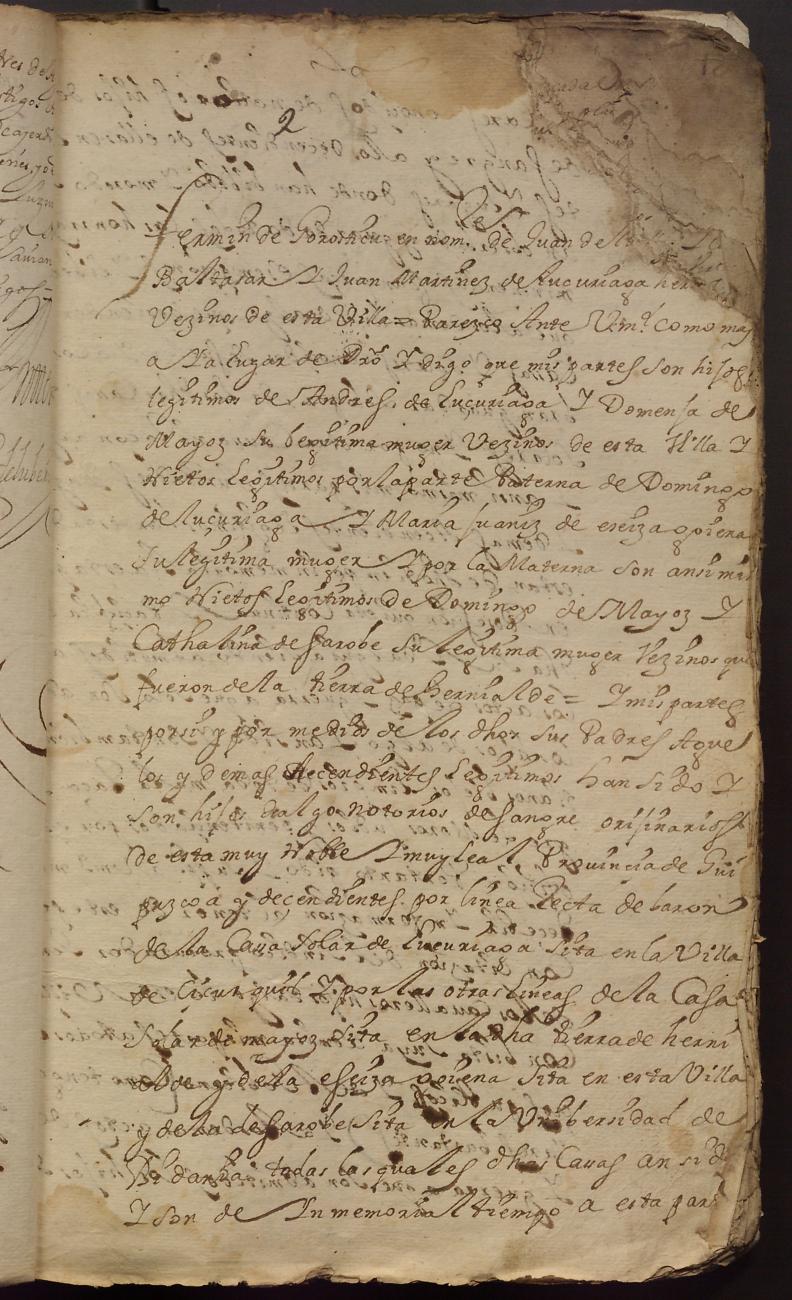 2
fermin de Sorostieu en nom.e de Juan de
Baltasar Y Juan Martinez de Lucuriaga her
Vezinos de esta Villa = Parezco Ante Vmd como mas
a Ya lugar de Dro Y digo que mis partes son hijos
legitimos de Andres de Lucuriaga Y Domensa de
Mayoz su legitima muger Vezinos de esta Villa Y
Nietos legitimos por la parte Paterna de Domingo
de Lucuriaga Y Maria Juaniz de ereiza goiena
su legitima muger Y por la Materna son ansimis
mo Nietos legitimos de Domingo de Mayoz Y
Cathalina de sarobe su legitima muger Vezinos que
fueron de la tierra de hernialde = Y mis partes
por si y por medio de los dhos sus Padres Aque
los y Demas decendientes legitimos han sido Y
son hijos dalgo notorios de sangre orijinarios
de esta muy Noble Y muy leal Provincia de Gui
puzcoa y decendientes por linea Recta de baron
de la Cassa solar de Lucuriaga sita en la Villa
de Cicurquil Y por las otras lineas de la Casa
solar de mayoz sita en la dha tierra de herni
alde y de la ereiza goiena sita en esta Villa
y de la de sarobe sita en la Unibersidad de
todas las quales dhas Casas an sido
Y son de Ynmemorial tiempo a esta part